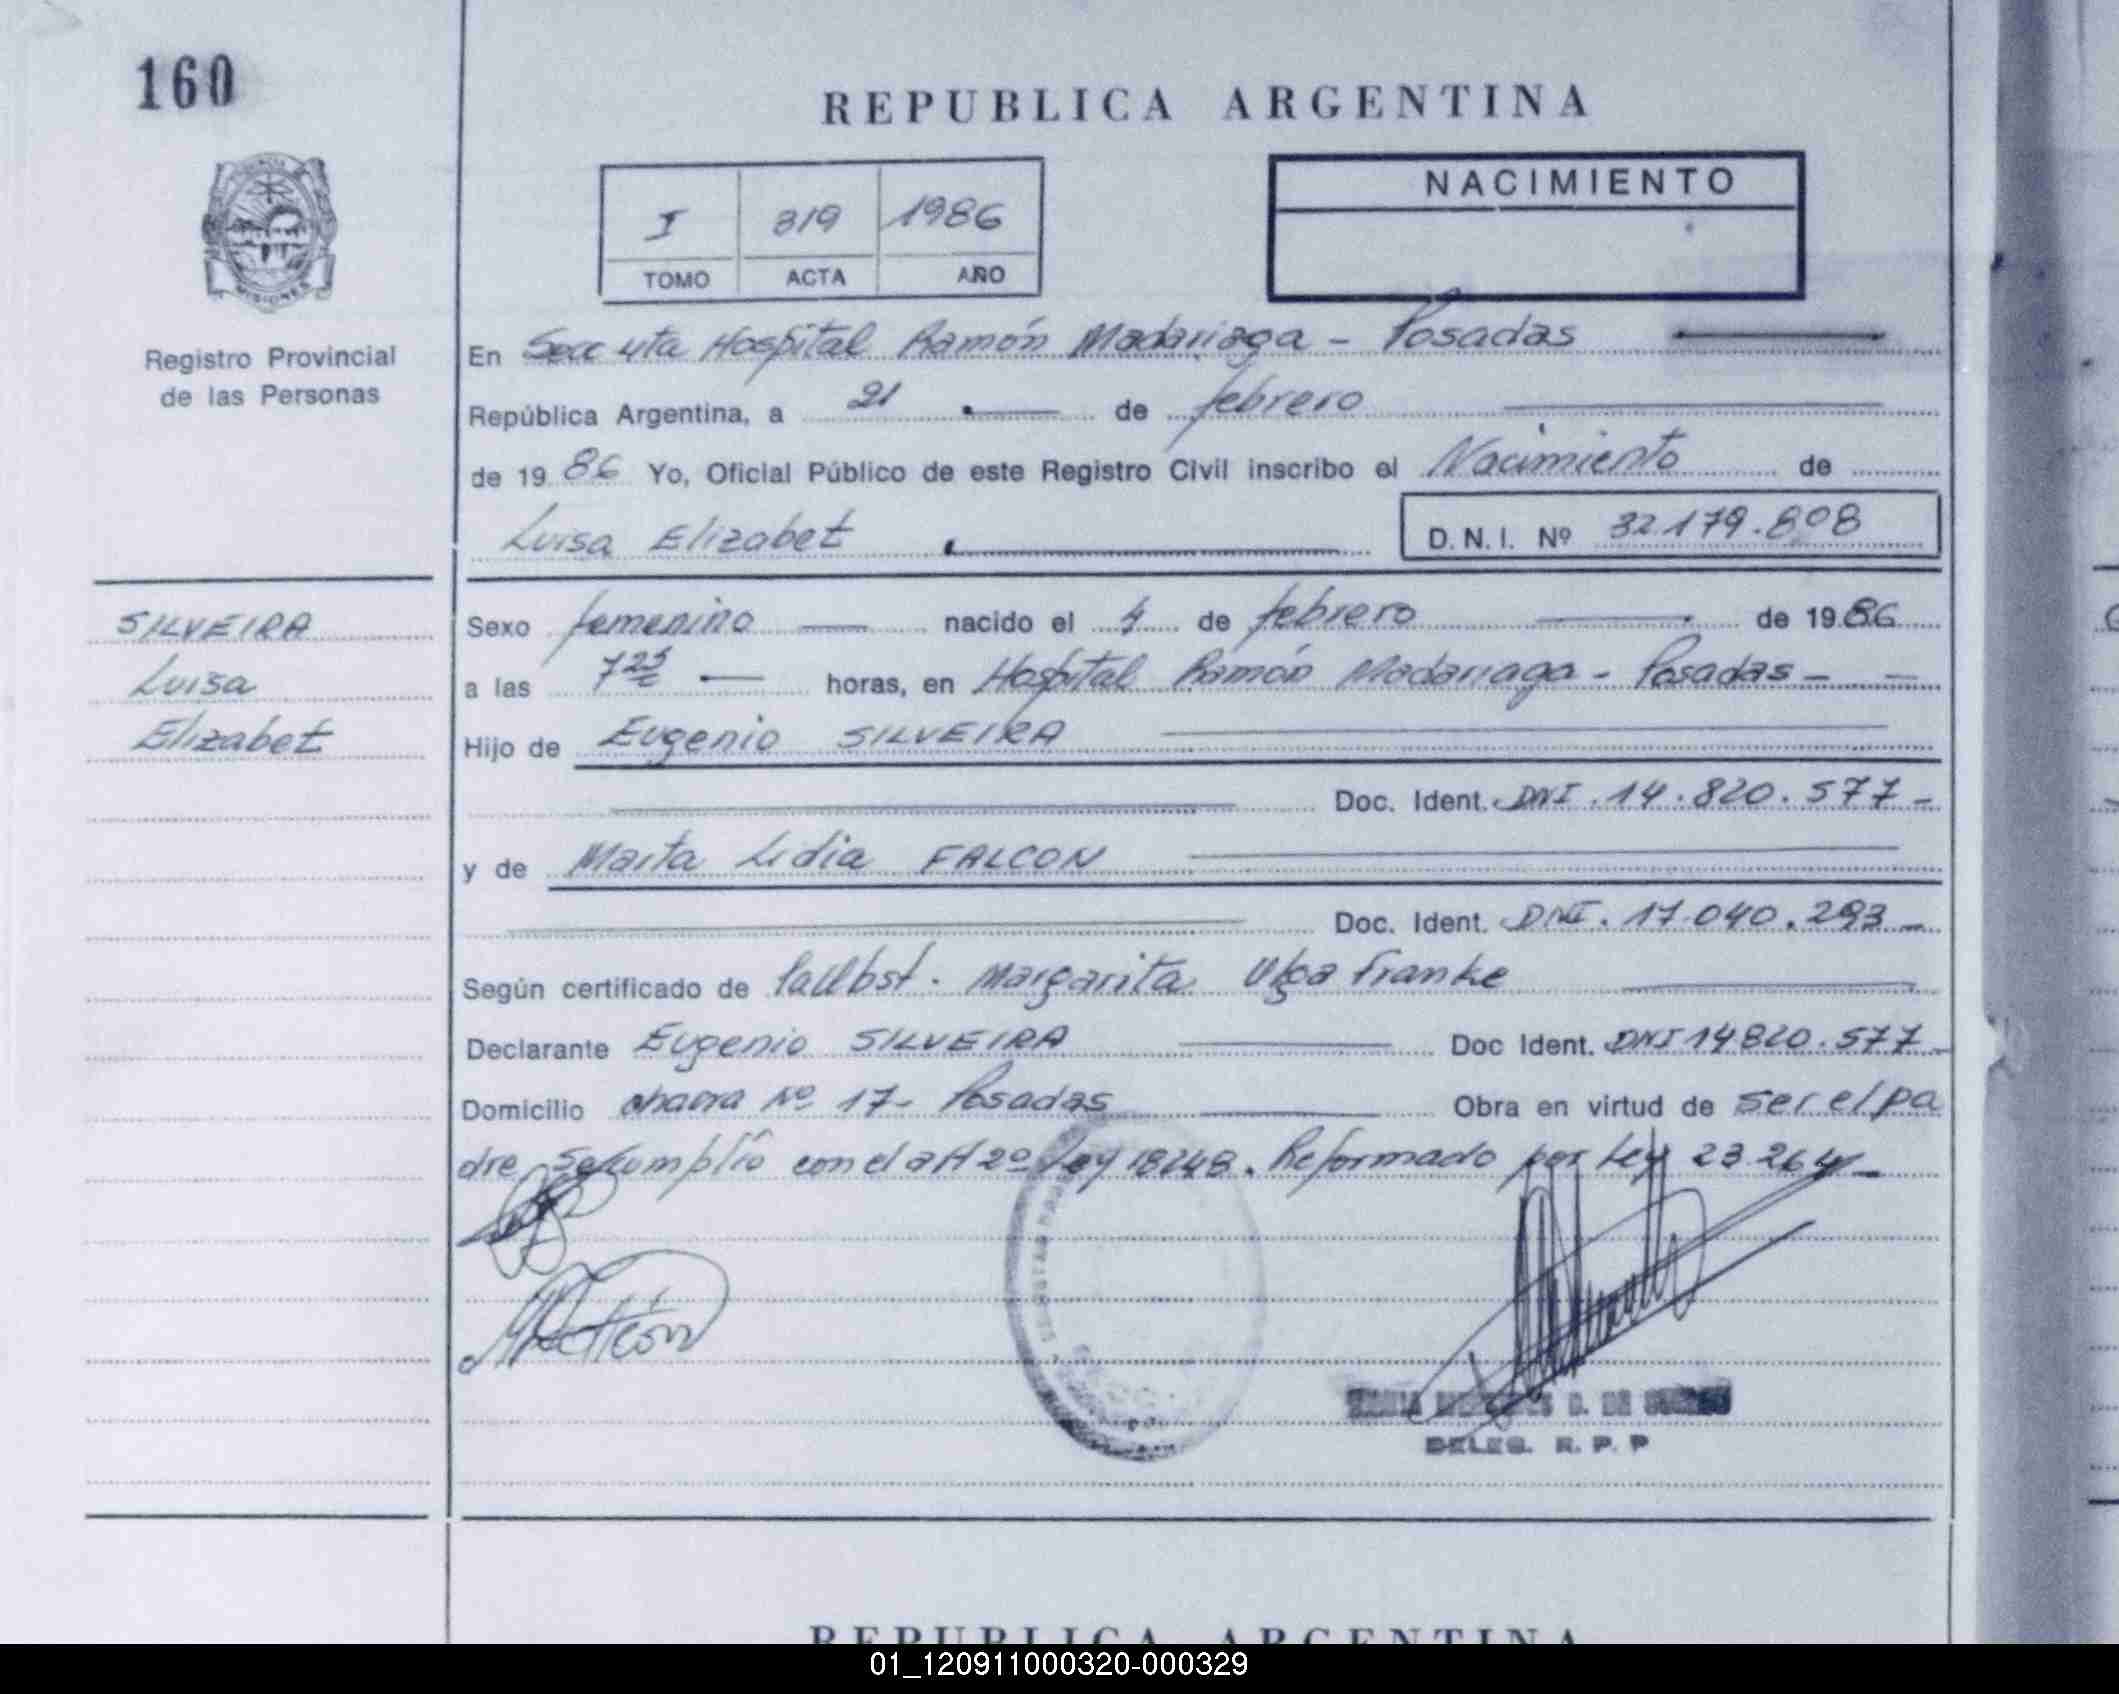 160
REPUBLICA ARGENTINA
I 319 1986
TOMO ACTA AÑO
NACIMIENTO
MISIONES
Registro Provincial
de las Personas
En Secc 4ta Hospital Ramón Madariaga - Posadas
República Argentina, a 21 de febrero
de 1986 Yo, Oficial Público de este Registro Civil inscribo el Nacimiento de
Luisa Elizabet D.N.I. Nº 32.179.808
SILVEIRA
Luisa
Elizabet
Sexo femenino nacido el 4 de febrero de 1986
a las 7 25 horas, en Hospital Ramón Madariaga - Posadas -
Hijo de Eugenio SILVEIRA
Doc. Ident. DNI. 14.820.577 -
y de Marta Lidia FALCON
Doc. Ident. DNI. 17.040.293 -
Según certificado de Margarita Olga Franke
Declarante Eugenio SILVEIRA Doc Ident. DNI 14820.577 -
Domicilio chacra Nº 17- Posadas Obra en virtud de ser el pa
dre Se cumplió con el art 2º Ley 18248. Reformado por Ley 23.264 -
DELEG. R. P. P
REPUBLICA ARGENTINA
01_120911000320-000329